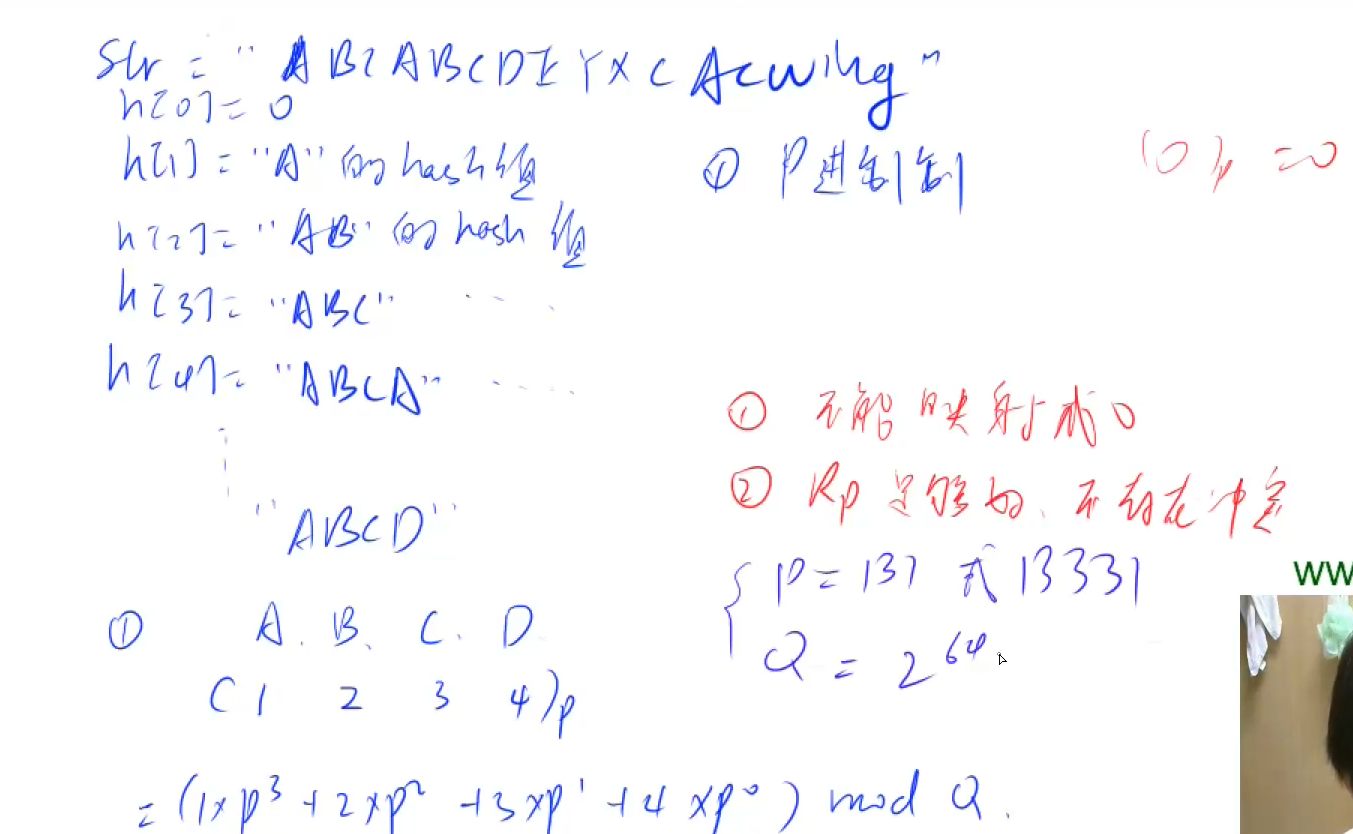 Str = "ABCABCDEYXCAcwing"
h[0] = 0
h[1] = "A" 的 hash 值
h[2] = "AB" 的 hash 值
h[3] = "ABC" ....
h[4] = "ABCA" ....
"ABCD"
① A. B. C. D
(1 2 3 4)p
= (1×p³ + 2×p² + 3×p¹ + 4×p⁰) mod Q.
① P进制
(0)p = 0
① 不能映射成0
② Rp足够好、不存在冲突
{ P = 131 或 13331
Q = 2⁶⁴.
WW